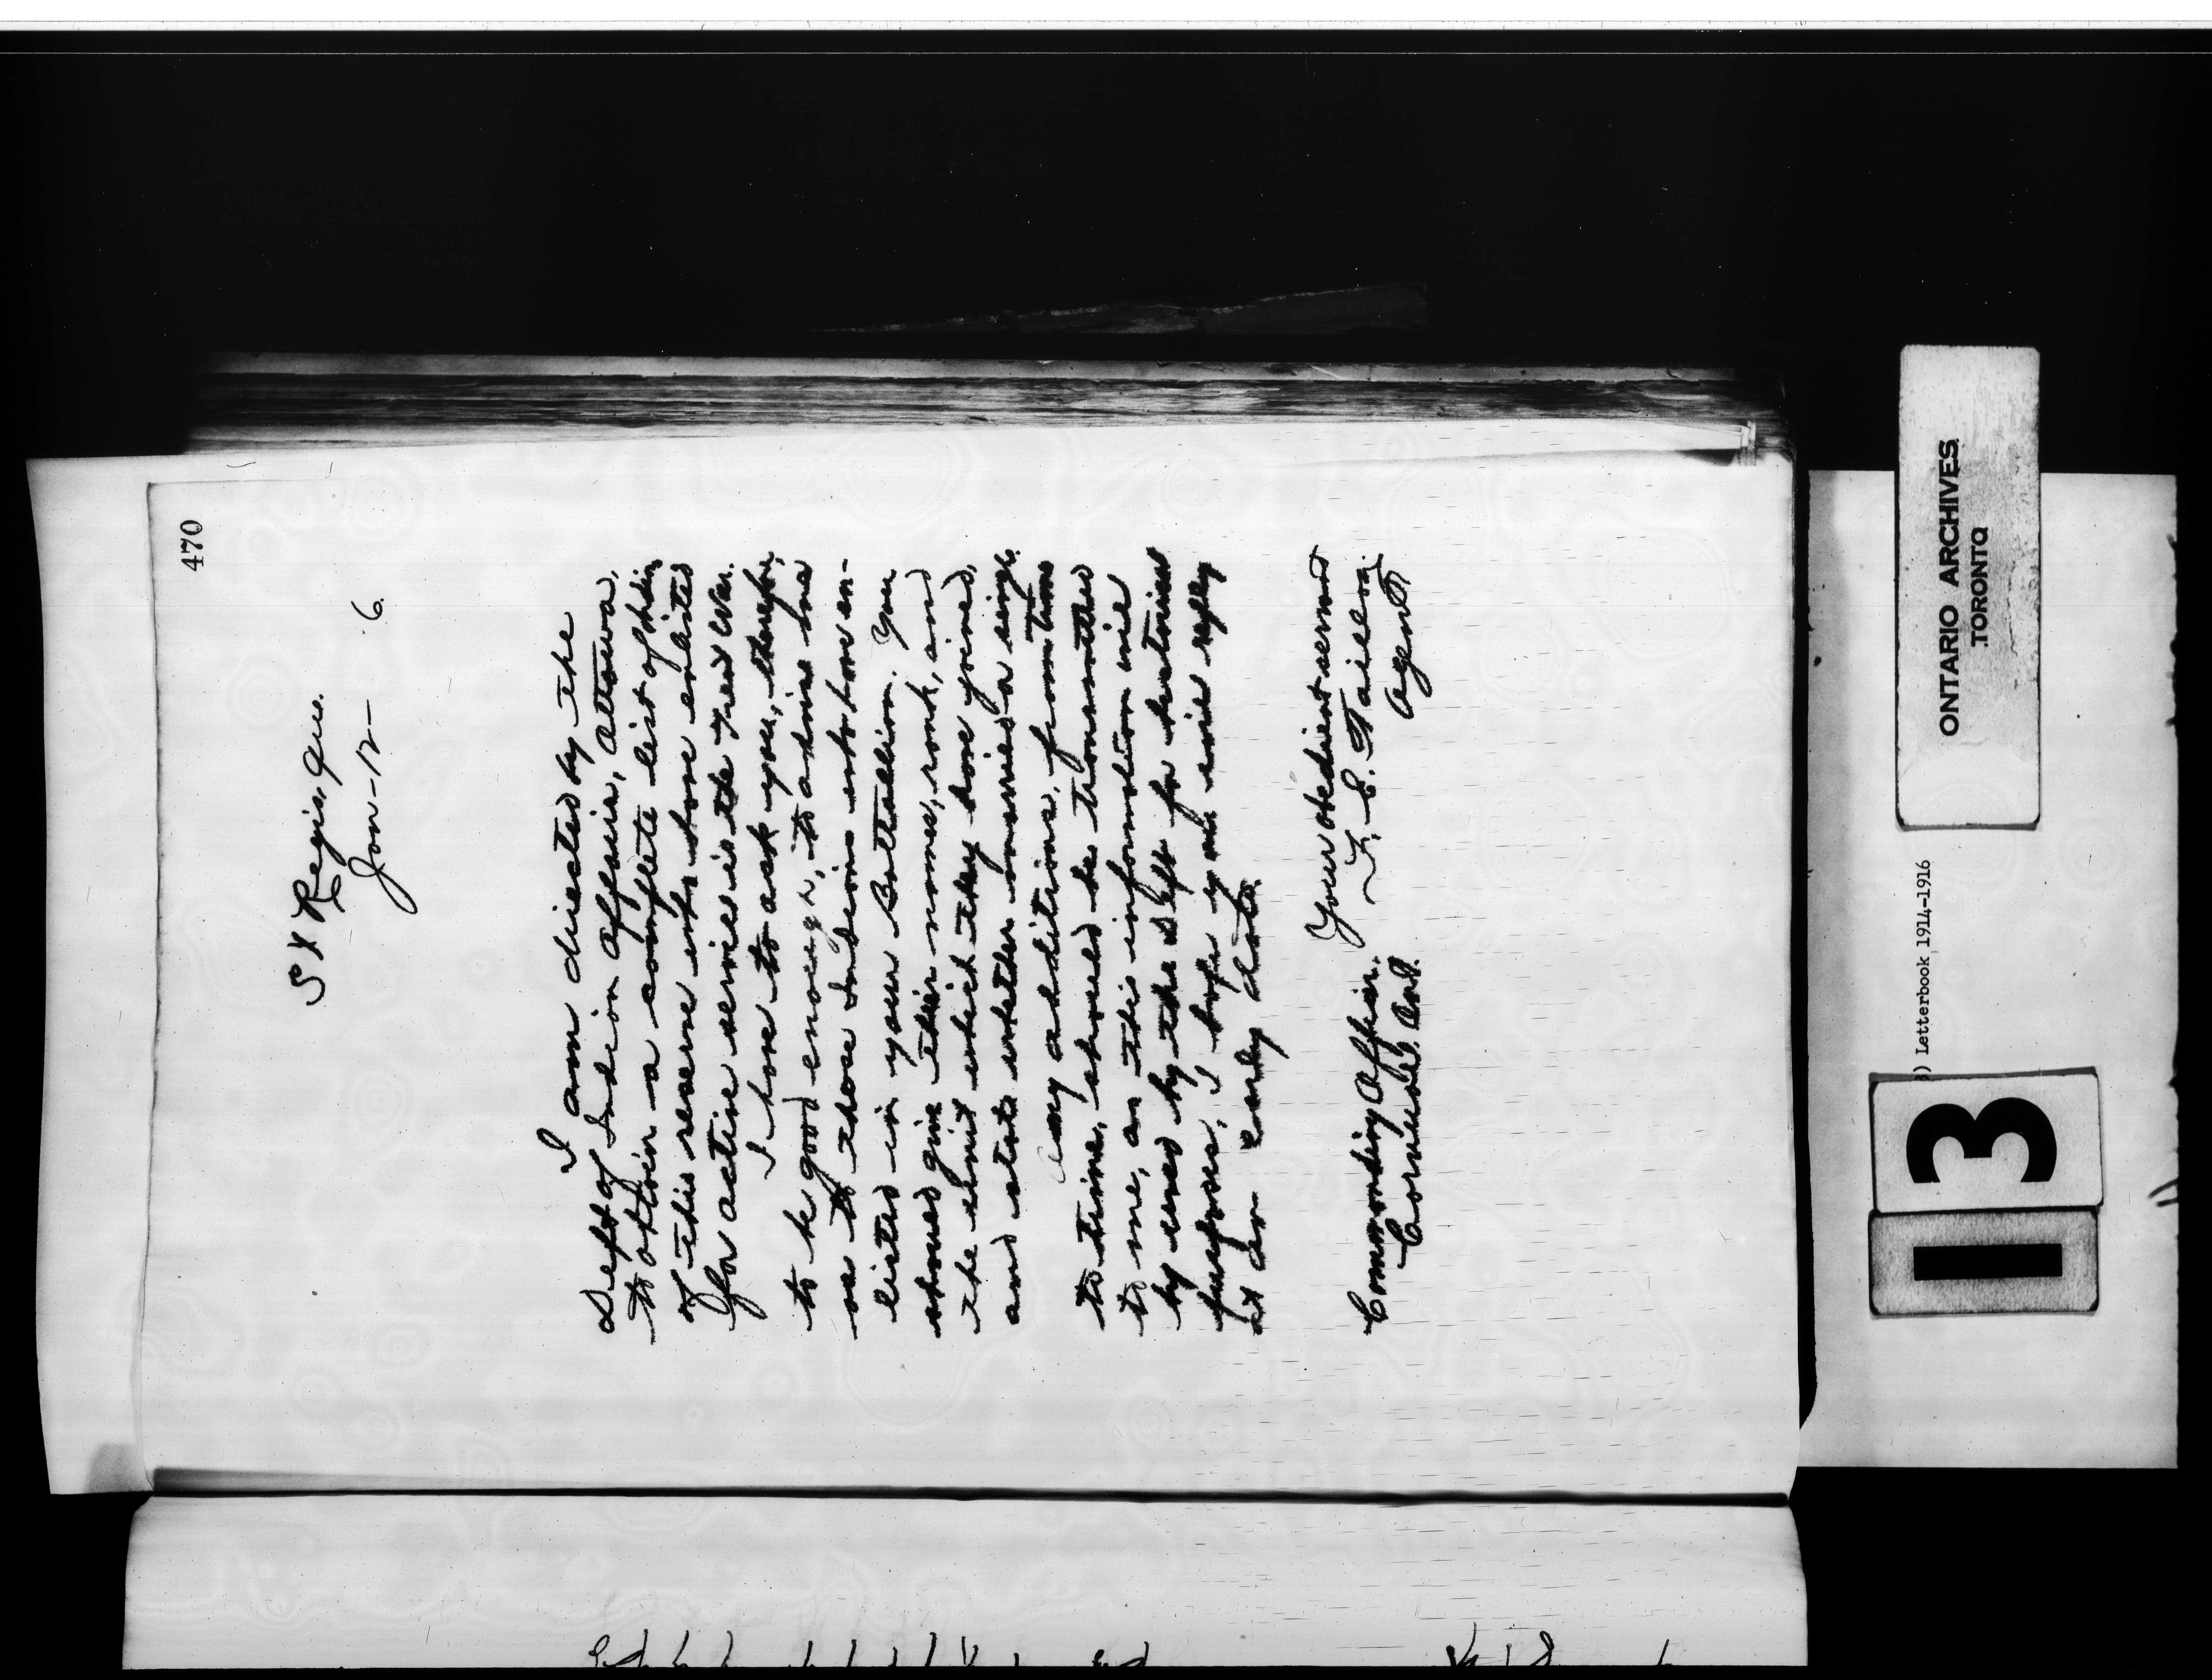 470
St Regis, Que.
Jan - 12 - 6.
I am directed by the
Dept of Indian Affairs, Ottawa,
to obtain a complete list of Indians
of this reserve who have enlisted
for active service in the War.
I have to ask you, therefore,
to be good enough, to advise me
as to those Indians who have en-
listed in your Battallion. You
should give their names, rank, and
the unit which they have joined,
and state whether married or single.
Any additions, from time
to time, should be transmitted
to me, as this information will
by used by the Dept for historical
purposes. I hope you will reply
at an early date.
Your obedient servant
F. E. Taillon
Agent
Commanding Officer.
Cornwall. Ont.
ONTARIO ARCHIVES
TORONTO
) Letterbook 1914-1916
13